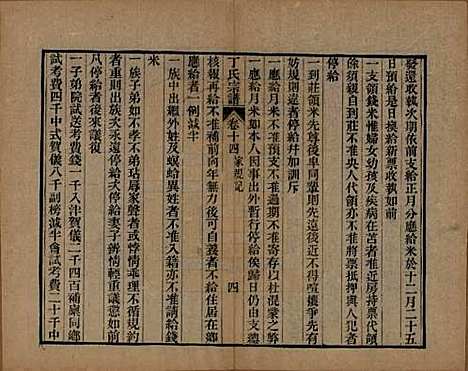 發還收執次期依前支給正月分應給米於十二月二十五
日預給是日換給新票收執如前
一支領錢米惟婦女幼孩及疾病在苫者准其央人代領
餘須親自到莊不准央人亦不准將票抵押與人犯者
停給
一到莊領米長幼卑同輩則先遠後近不得喧嚷爭先
妨規則違者停給幷加訓斥
一應給月米不准過期不准并期支取以杜混蒙之弊
一應給月米如本人因事出外暫行停給俟歸日仍由支總
丁氏宗譜 卷十四 家規記 四
核報再給不准補前向年無力後能自給者不准給在鄉
應給者一例減半
一族中出繼外姓及螟蛉異姓者不准入籍亦不准請給錢
米
一族子弟如不孝不弟玷辱家聲者或作奸犯科不守規
者重則出族永遠停給夫停給妻子餘情輕重議懲如有
凡停給者後來議復
一子弟院試送考費二千入泮賀儀二千四百補廩同鄉
試考費四千中式賀儀八千副榜減半會試考費二十千中